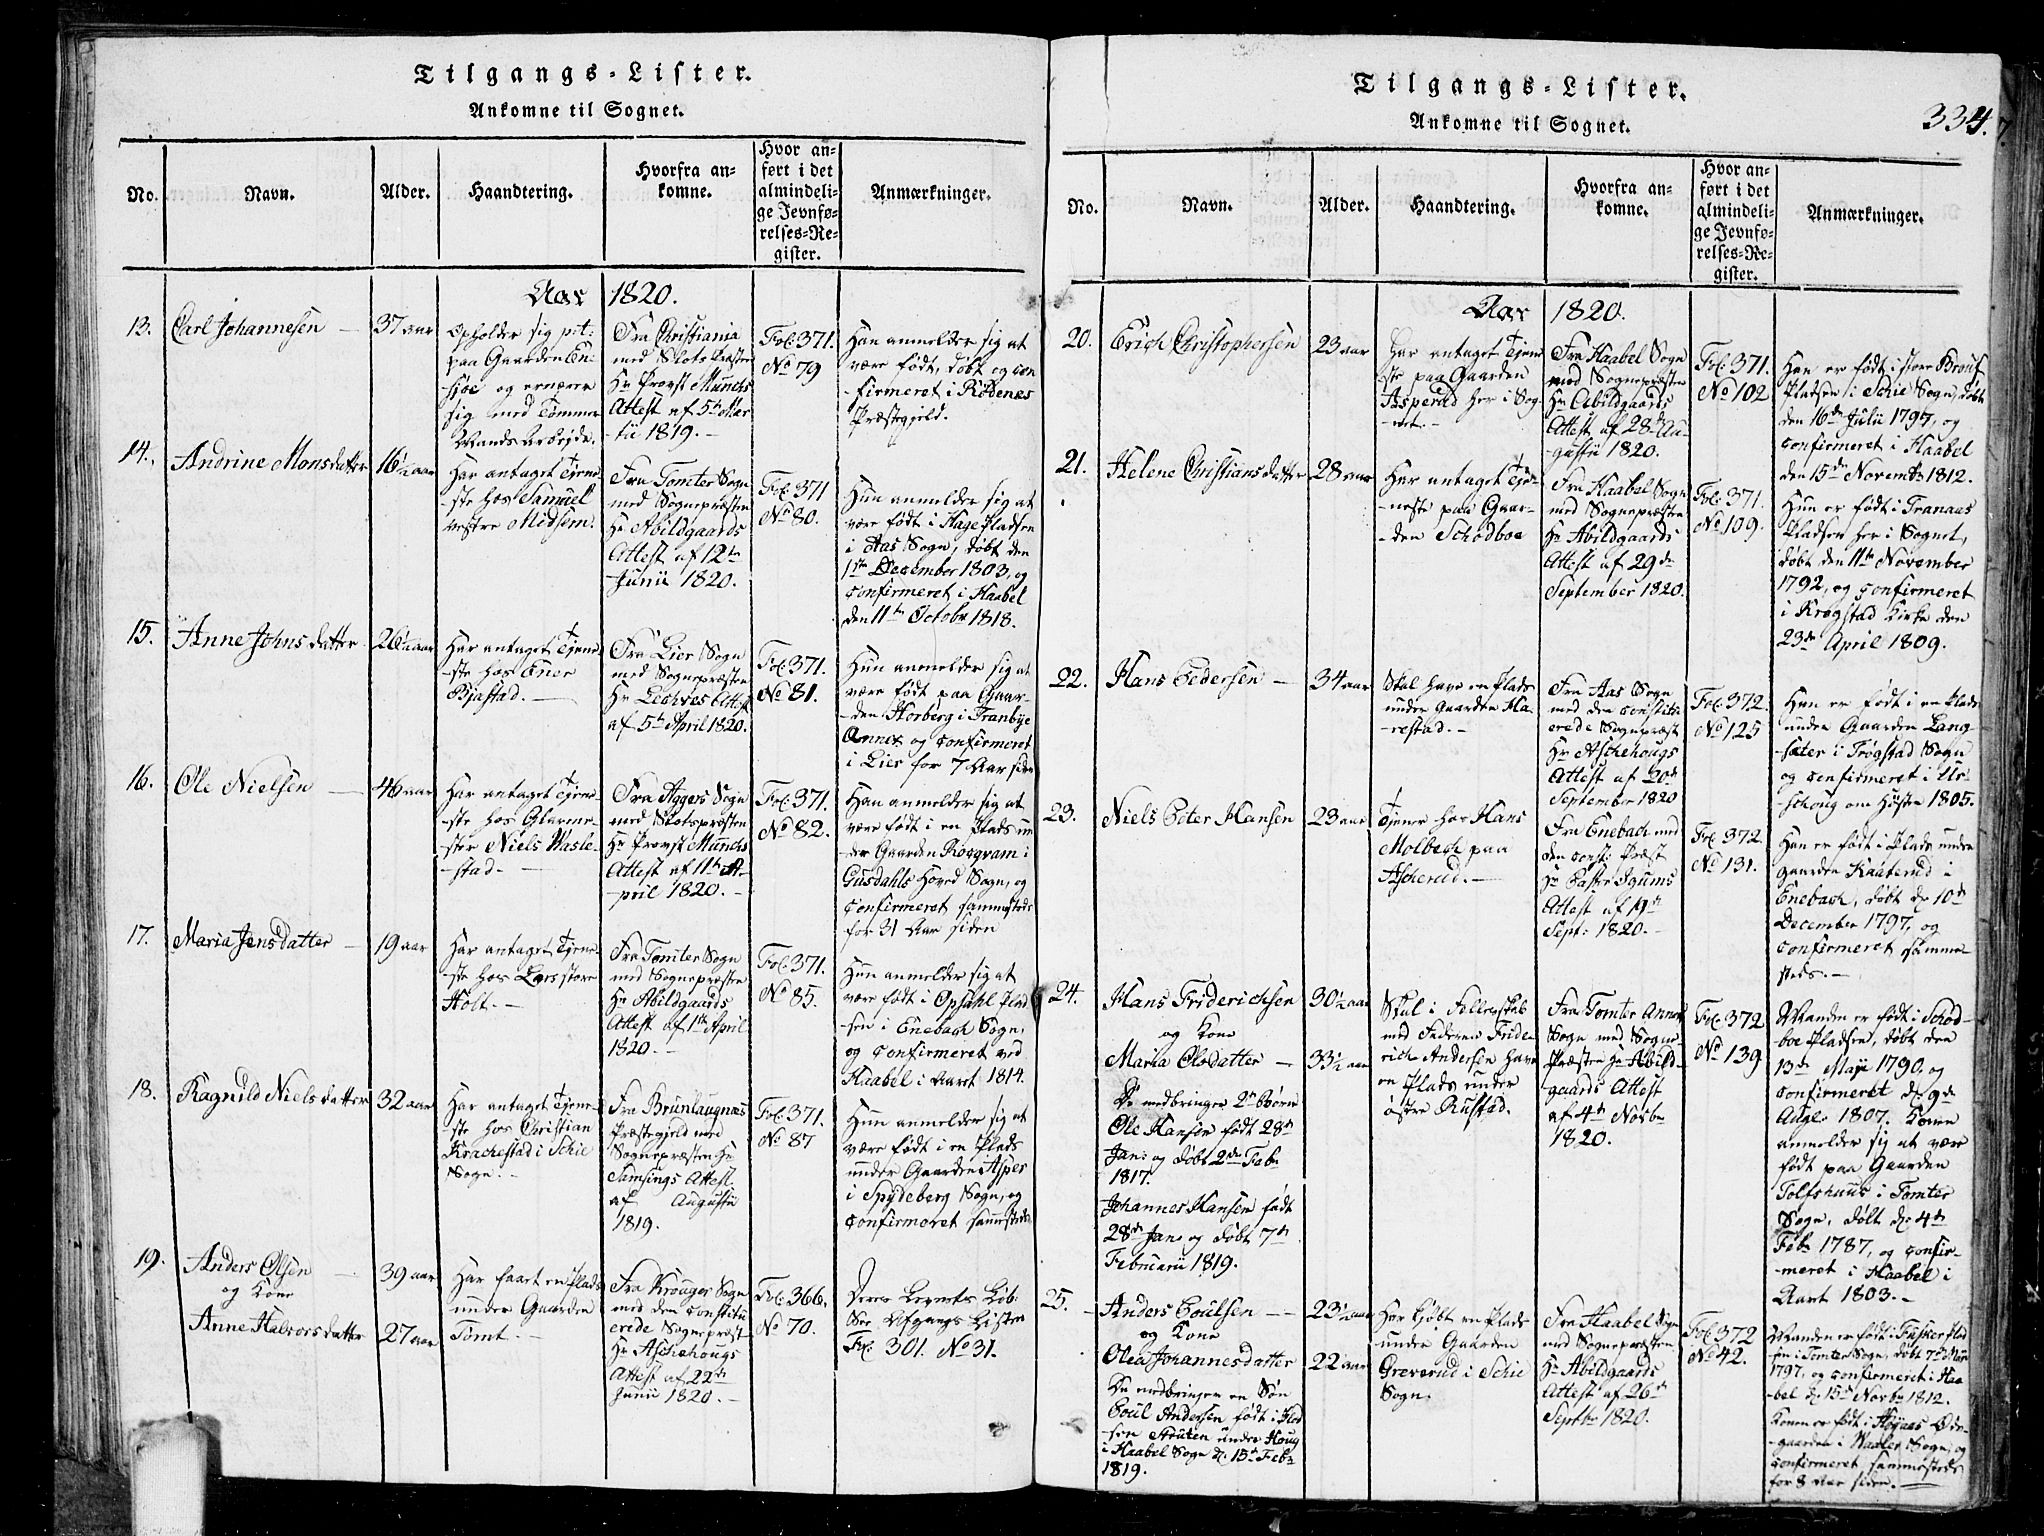 Tilgangs-Lister.
Ankomne til Sognet.
No.
Navn.
Alder.
Haandtering.
Hvorfra an-
komne.
Hvor an-
ført i det
almindeli-
ge Jevnfø-
relses-Re-
gister.
Anmærkninger.
Aar 1820.
13.
Carl Johannesen
37 aar
opholder sig pt:
paa Gaarden
og ernærer
sig med Tømmer
Mands Arbejde.
Fra Christiania
med Slots Præsten
Hr Provst Munchs
Attest af 5te Mar-
tii 1819.
Fol. 371.
No 79
Han anmelder sig at
være født, døbt og con
-firmeret i Rødenes
Præstegjeld.
14.
Andrine Monsdatter
16½ aar
Har antaget Tjene-
-ste hos Samuel
vestre Midsem.
Fra Tomter Sogn
med Sognepræsten
Hr Abildgaards
Attest af 12te
Junii 1820.
Fol. 371
No 80.
Hun anmelder sig at
være født i Hage Pladsen
i Aas Sogn, døbt den
11te December 1803, og
confirmeret i Haabel
den 11te Octobr 1818.
15.
Anne Johnsdatter
26½ aar
Har antaget Tjene-
-ste hos Ener
Bjastad.
Fra Lier Sogn
med Sognepræsten
Hr Attest
af 5te April 1820.
Fol. 371.
No 81.
Hun anmelder sig at
være født paa Gaar-
-den Horberg i Tranbye
Annex og confirmeret
i Lier for 7 Aar siden
16.
Ole Nielsen
46 aar
Har antaget Tjene-
-ste hos Glarme-
-ster Niels Wasle-
-stad.
Fra Aggers Sogn
med Slotspræsten
Hr Provst Munchs
Attest af 11te A-
-pril 1820.
Fol. 371.
No 82.
Han anmelder sig at
være født i en Plads un
-der Gaarden Rosgvam i
Gusdahls Hoved Sogn, og
confirmeret sammesteds
for 31 Aar siden
17.
Maria Jensdatter
19 aar
Har antaget Tjene-
-ste hos Lars store
Holt.
Fra Tomter Sogn
med Sognepræsten
Hr Abildgaards
Attest af 1te April
1820.
Fol. 371.
No 85.
Hun anmelder sig at
være født i Opsahl Plad
-sen i Enebach Sogn,
og confirmeret ved
Haabel i Aaret 1814.
18.
Ragnild Nielsdatter
32 aar
Har antaget Tjene-
-ste hos Christian
Krachestad i Schie
Sogn.
Fra Brunlaugnæs
Præstegjeld med
Sognepræsten Hr
Samsings Attest
af Augusti
1819.
Fol. 371.
No 87
Hun anmelder sig at
være født i en Plads
under Gaarden Asper
i Spydeberg Sogn, og
confirmeret sammesteds
19.
Anders Olsen
og Kone
Anne Halvorsdatter
39 aar
27 aar
Har faaet en Plads
under Gaarden
Tomt.
Fra Krouger Sogn
med den constitu
erede Sognepræst
Hr Aschehougs
Attest af 22de
Junii 1820.
Fol. 366.
No 70.
Deres Levnets Løb:
See Afgangs Listen
Fol. 301. No 31.
Tilgangs-Lister.
Ankomne til Sognet.
334.
No.
Navn.
Alder.
Haandtering.
Hvorfra an-
komne.
Hvor an-
ført i det
almindeli-
ge Jevnfø-
relses-Re-
gister.
Anmærkninger.
Aar 1820.
20.
Erich Christophersen
23 aar
Har antaget Tjene
-ste paa Gaarden
Asperud her i Sog-
-net.
Fra Haabel Sogn
med Sognepræsten
Hr Abildgaards
Attest af 28de Au-
gustii 1820.
Fol. 371.
No 102
Han er født i store
Pladsen i Schie Sogn, døbt
den 16de Julii 1797, og
confirmeret i Haabel
den 15de Novembr 1812.
21.
Helene Christiansdatter
28 aar
Har antaget Tje-
-neste paa Gaar-
-den Schodboe
Fra Haabel Sogn
med Sognepræsten
Hr Abildgaards
Attest af 29de
September 1820.
Fol. 371.
No 109.
Hun er født i Tranaas
Pladsen her i Sognet,
døbt den 11te November
1792, og confirmeret
i Krogstad Kirke den
23de April 1809.
22.
Hans Pedersen
34 aar
Skal have en Plads
under Gaarden Ha-
-restad.
Fra Aas Sogn
med den constitu
erede Sognepræst
Hr Aschehougs
Attest af 20de
September 1820
Fol. 372.
No 125
Han er født i en Plads
under Gaarden Lang-
-sæter i Trøgstad Sogn
og confirmeret i Ur-
-schoug om Høsten 1805.
23.
Niels Peter Hansen
23 aar
Tjener hos Hans
Molbech paa
Ascherud.
Fra Enebach med
den const: Præst
Hr Pastor
Attest af 19de
Sept: 1820.
Fol. 372.
No 131.
Han er født i Plads under
Gaarden Kaaterud i
Enebach, døbt d. 10de
December 1797, og
confirmeret samme-
steds.
24.
Hans Friderichsen
og Kone
Maria Olsdatter
De medbringer 2de Børn
Ole Hansen født 28de
Jan: og døbt 2den Febr
1817.
Johannes Hansen født
28de Jan: og døbt 7de
Februarii 1819.
30½ aar
33½ aar
Skal i Fællesskab
med Faderen Fride-
rich Andersen have
en Plads under
østre Rustad.
Fra Tomter Annex
Sogn med Sogne-
Præsten Hr Abild-
gaards Attest
af 4de Novbr
1820.
Fol. 372
No 139
Manden er født i Schod-
boe Pladsen, døbt den
13de Maji 1790. og
confirmeret d. 9de
Aug: 1807. Konen
anmelder sig at være
født paa Gaarden
Tolfshuus i Tomter
Sogn, døbt d. 4de
Febr 1787, og confir-
-meret i Haabel i
Aaret 1803.
25.
Anders Poulsen
og Kone
Olea Johannesdatter
De medbringer en Søn
Poul Andersen født i Plad
-sen Bruten under Houg
i Haabel Sogn d. 15de Febr
1819.
23½ aar
22 aar
Har kjøbt en Plads
under Gaarden
Greverud i Schie
Sogn.
Fra Haabel Sogn
med Sognepræsten
Hr Abildgaards
Attest af 26de
Septbr 1820.
Fol. 372
No 42.
Manden er født i Plad
-sen i Tomter Sogn, døbt 7de Maii
1797, og confirmeret i Haa
-bel d. 15de Novbr 1812.
Konen er født i Øde-
-gaarden i Waaler Sogn, og
confirmeret sammesteds
for 8 Aar siden.